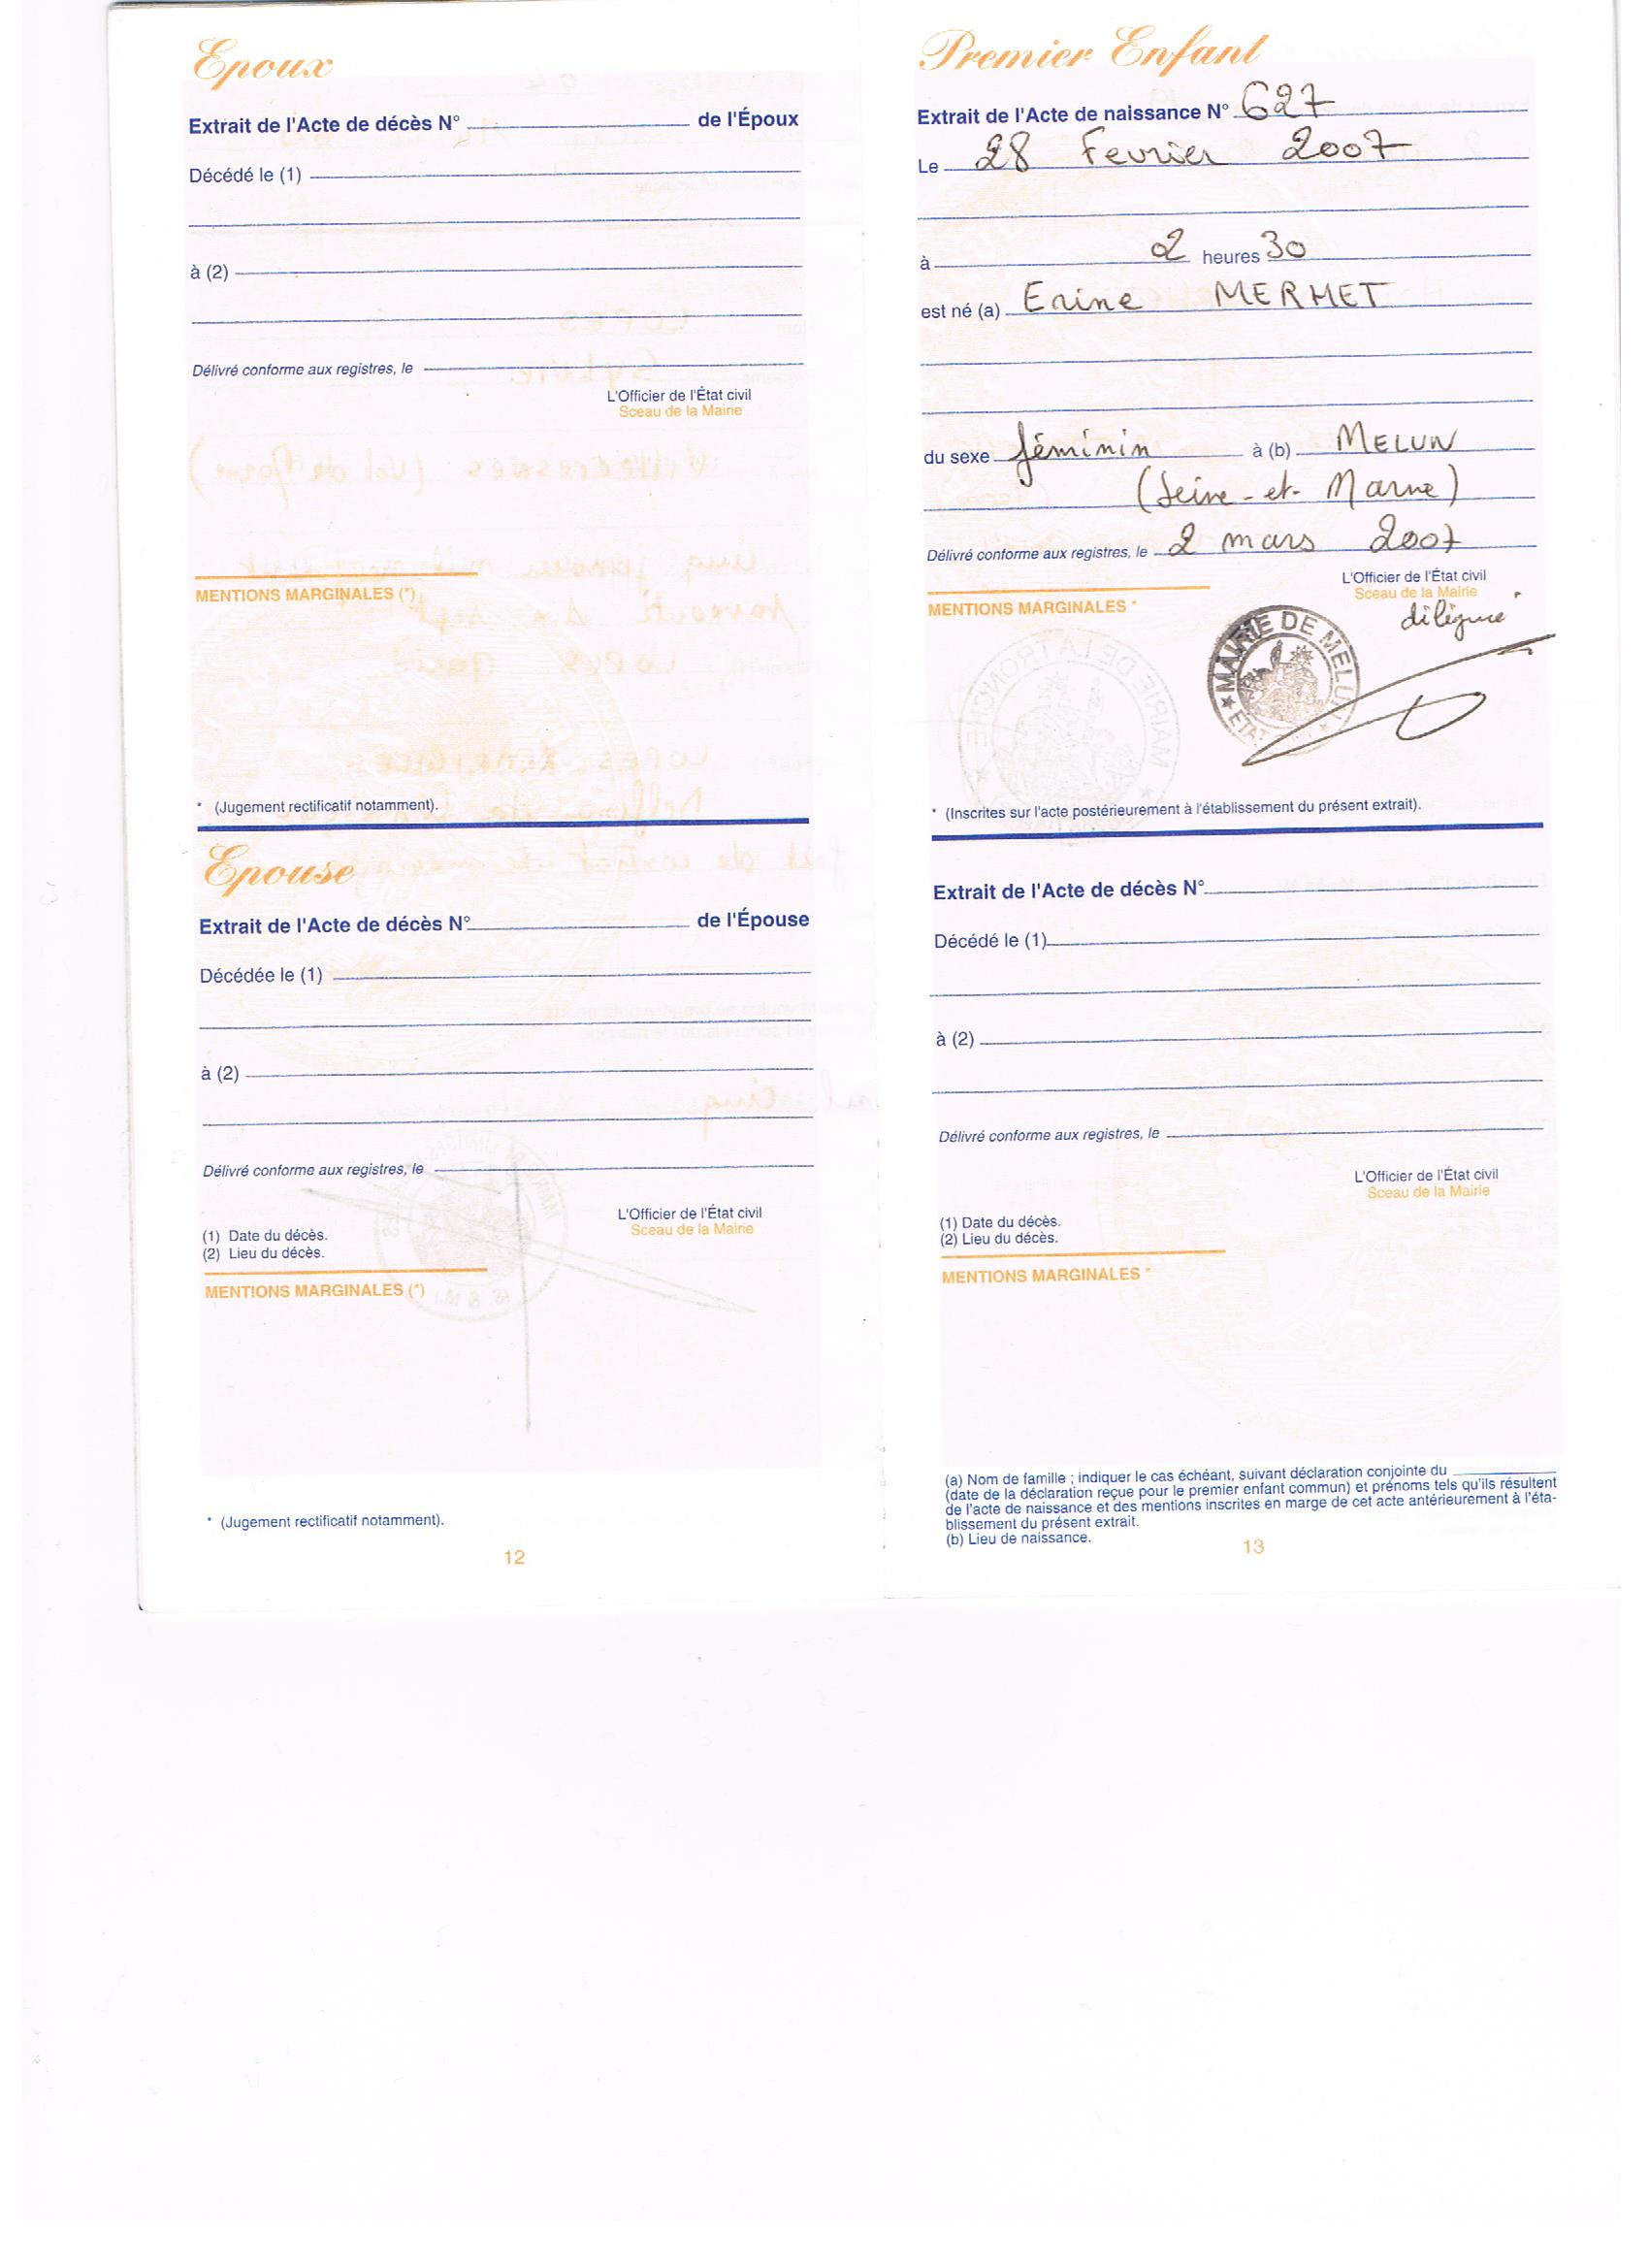 Epoux
Extrait de l'Acte de décès N° de l'Époux
Décédé le (1)
à (2)
Délivré conforme aux registres, le
L'Officier de l'État civil
Sceau de la Mairie
MENTIONS MARGINALES (*)
* (Jugement rectificatif notamment).
Epouse
Extrait de l'Acte de décès N° de l'Épouse
Décédée le (1)
à (2)
Délivré conforme aux registres, le
L'Officier de l'État civil
Sceau de la Mairie
(1) Date du décès.
(2) Lieu du décès.
MENTIONS MARGINALES (*)
* (Jugement rectificatif notamment).
12
Premier Enfant
Extrait de l'Acte de naissance N° 627
Le 28 Fevrier 2007
à 2 heures 30
est né (a) Erine MERMET
du sexe féminin à (b) MELUN
(Seine-et-Marne)
Délivré conforme aux registres, le 2 mars 2007
L'Officier de l'État civil
Sceau de la Mairie
MENTIONS MARGINALES *
MAIRIE DE MELUN
* (Inscrites sur l'acte postérieurement à l'établissement du présent extrait).
Extrait de l'Acte de décès N°
Décédé le (1)
à (2)
Délivré conforme aux registres, le
L'Officier de l'État civil
Sceau de la Mairie
(1) Date du décès.
(2) Lieu du décès.
MENTIONS MARGINALES *
(a) Nom de famille ; indiquer le cas échéant, suivant déclaration conjointe du
(date de la déclaration reçue pour le premier enfant commun) et prénoms tels qu'ils résultent
de l'acte de naissance et des mentions inscrites en marge de cet acte antérieurement à l'éta-
blissement du présent extrait.
(b) Lieu de naissance.
13